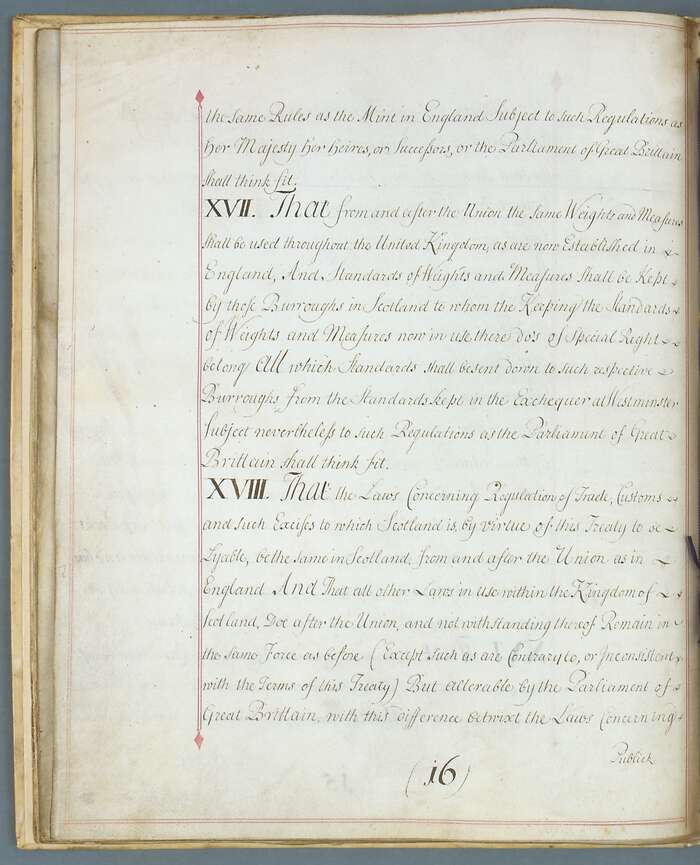 the same Rules as the Mint in England Subject to such Regulations as
Her Majesty Her Heires, or Successors, or the Parliament of Great Brittain
shall think fit.
XVII. That from and after the Union the same Weights and Measures
shall be used throughout the United Kingdom, as are now Established in
England, And, Standards of Weights and Measures shall be Kept
by those Burroughs in Scotland to whom the Keeping the Standards
of Weights and Measures now in use there do's of Special Right
belong All which Standards shall be sent down to such respective
Burroughs from the Standards kept in the Exchequer at Westminster
Subject nevertheless to such Regulations as the Parliament of Great
Brittain shall think fit.
XVIII. That the Laws Concerning Regulation of Trade, Customs
and such Excises to which Scotland is, by virtue of this Treaty to be
Lyable, be the same in Scotland, from and after the Union as in
England And That all other Laws in use within the Kingdom of
Scotland, Doe after the Union, and notwithstanding thereof Remain in
the same Force as before (Except such as are Contrary to, or Inconsistent
with the Terms of this Treaty) But alterable by the Parliament of
Great Brittain, with this difference betwixt the Laws Concerning
Publick
(16)